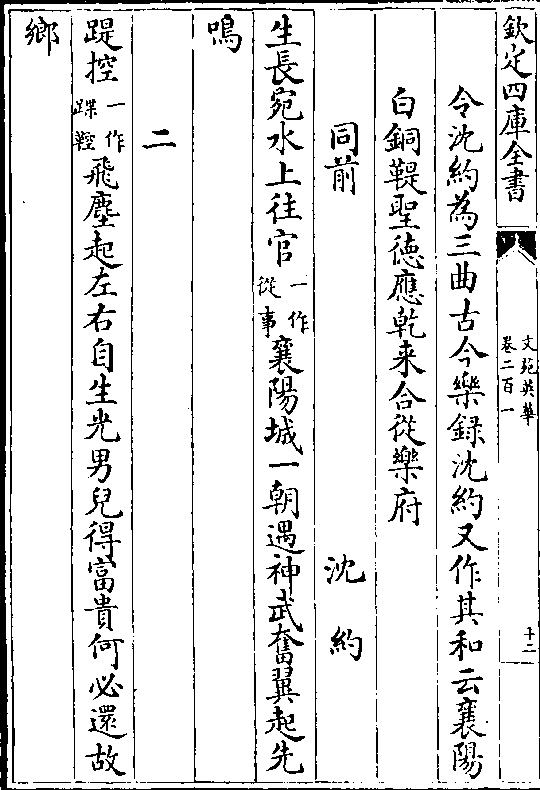 欽定四庫全書
文苑英華
卷二百一
十二
令沈約為三曲古今樂録沈約又作其和云襄陽
白銅鞮聖徳應乾来合從樂府
同前 沈約
生長宛水上往官一作從事襄陽城一朝遇神武奮翼起先
鳴
二
踶控一作蹀鞚飛塵起左右自生光男兒得富貴何必還故
鄉